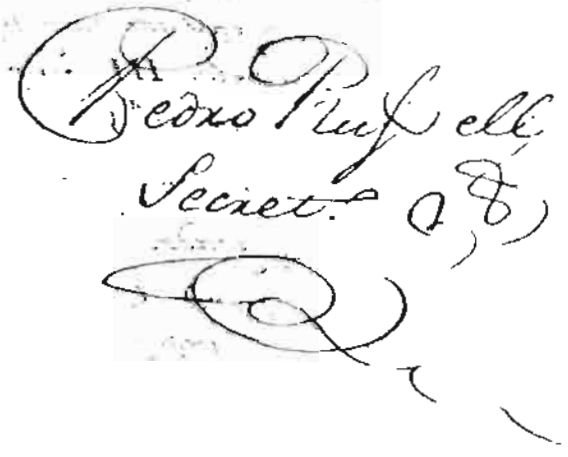 Pedro Russell,
Secret.º